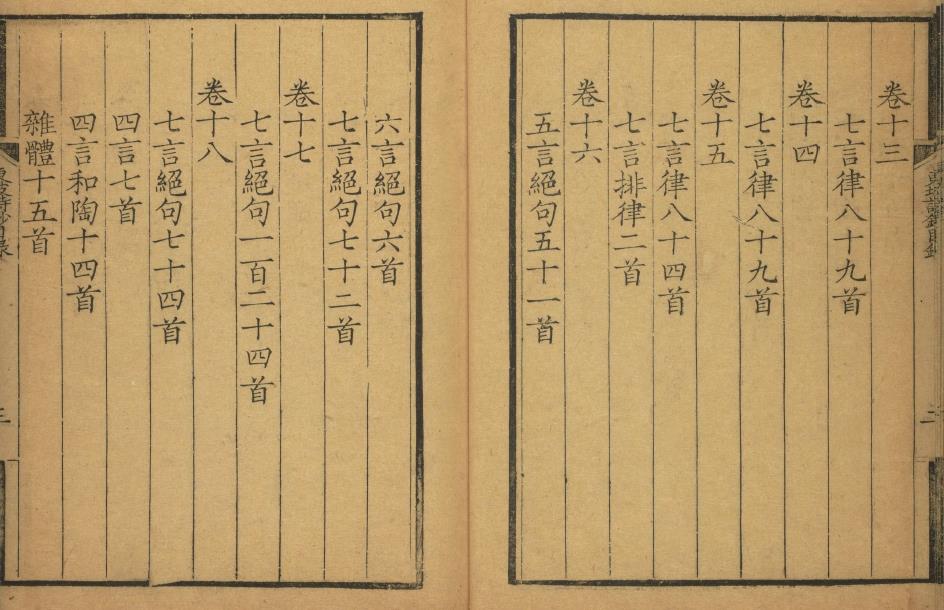 卷十三
七言律八十九首
卷十四
七言律八十九首
卷十五
七言律八十四首
七言排律二首
卷十六
五言絕句五十一首
六言絕句六首
七言絕句七十二首
卷十七
七言絕句一百二十四首
卷十八
七言絕句七十四首
四言七首
四言和陶十四首
雜體十五首